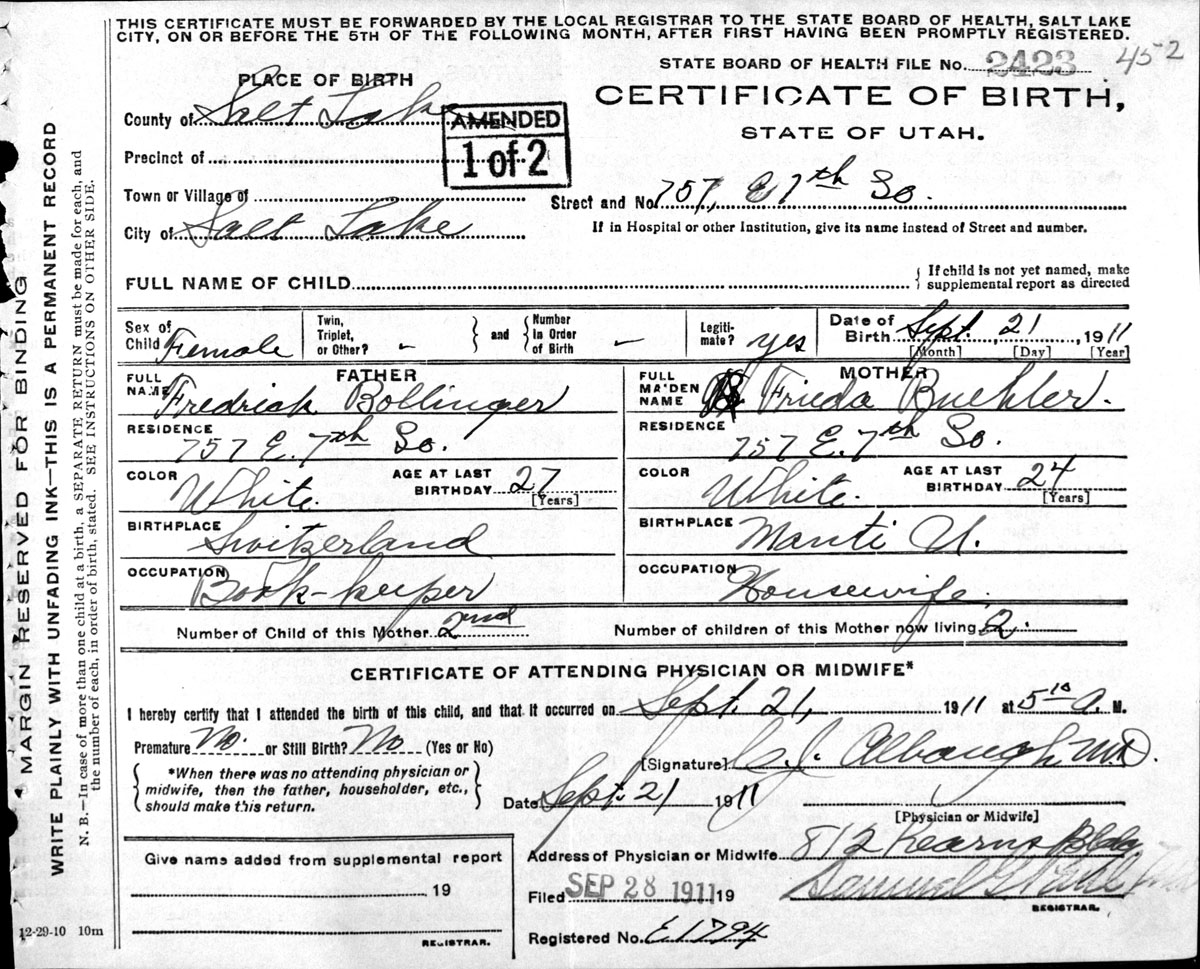 THIS CERTIFICATE MUST BE FORWARDED BY THE LOCAL REGISTRAR TO THE STATE BOARD OF HEALTH, SALT LAKE
CITY, ON OR BEFORE THE 5TH OF THE FOLLOWING MONTH, AFTER FIRST HAVING BEEN PROMPTLY REGISTERED.
STATE BOARD OF HEALTH FILE No. 2423 452
PLACE OF BIRTH
CERTIFICATE OF BIRTH,
STATE OF UTAH.
County of Salt Lake
AMENDED
1 of 2
Precinct of
Town or Village of
Street and No 757, E 7th So.
City of Salt Lake
If in Hospital or other Institution, give its name instead of Street and number.
FULL NAME OF CHILD
{ If child is not yet named, make
supplemental report as directed
Sex of Child Female
Twin, Triplet, or Other? - } and { Number in Order of Birth -
Legiti-mate? yes
Date of Birth Sept. 21, 1911
[Month] [Day] [Year]
FATHER
FULL NAME Fredrick Bollinger
MOTHER
FULL MAIDEN NAME Frieda Buehler.
RESIDENCE 757 E. 7th So.
RESIDENCE 757 E. 7th So.
COLOR White. AGE AT LAST BIRTHDAY 27 [Years]
COLOR White. AGE AT LAST BIRTHDAY 24 [Years]
BIRTHPLACE Switzerland
BIRTHPLACE Manti U.
OCCUPATION Book-keeper
OCCUPATION Housewife.
Number of Child of this Mother 2nd
Number of children of this Mother now living 2.
CERTIFICATE OF ATTENDING PHYSICIAN OR MIDWIFE*
I hereby certify that I attended the birth of this child, and that it occurred on Sept. 21, 1911 at 5 10 A. M.
Premature No. or Still Birth? No (Yes or No)
{ *When there was no attending physician or
midwife, then the father, householder, etc.,
should make this return. }
[Signature] Albaugh M.D.
Date Sept. 21 1911
[Physician or Midwife]
Give name added from supplemental report
19
REGISTRAR.
Address of Physician or Midwife 812 Kearns Bldg
Filed SEP 28 1911 19 Samuel G. Paul
REGISTRAR.
Registered No. E1794
12-29-10 10m
MARGIN RESERVED FOR BINDING
WRITE PLAINLY WITH UNFADING INK—THIS IS A PERMANENT RECORD
N. B.—In case of more than one child at a birth, a SEPARATE RETURN must be made for each, and
the number of each, in order of birth, stated. SEE INSTRUCTIONS ON OTHER SIDE.